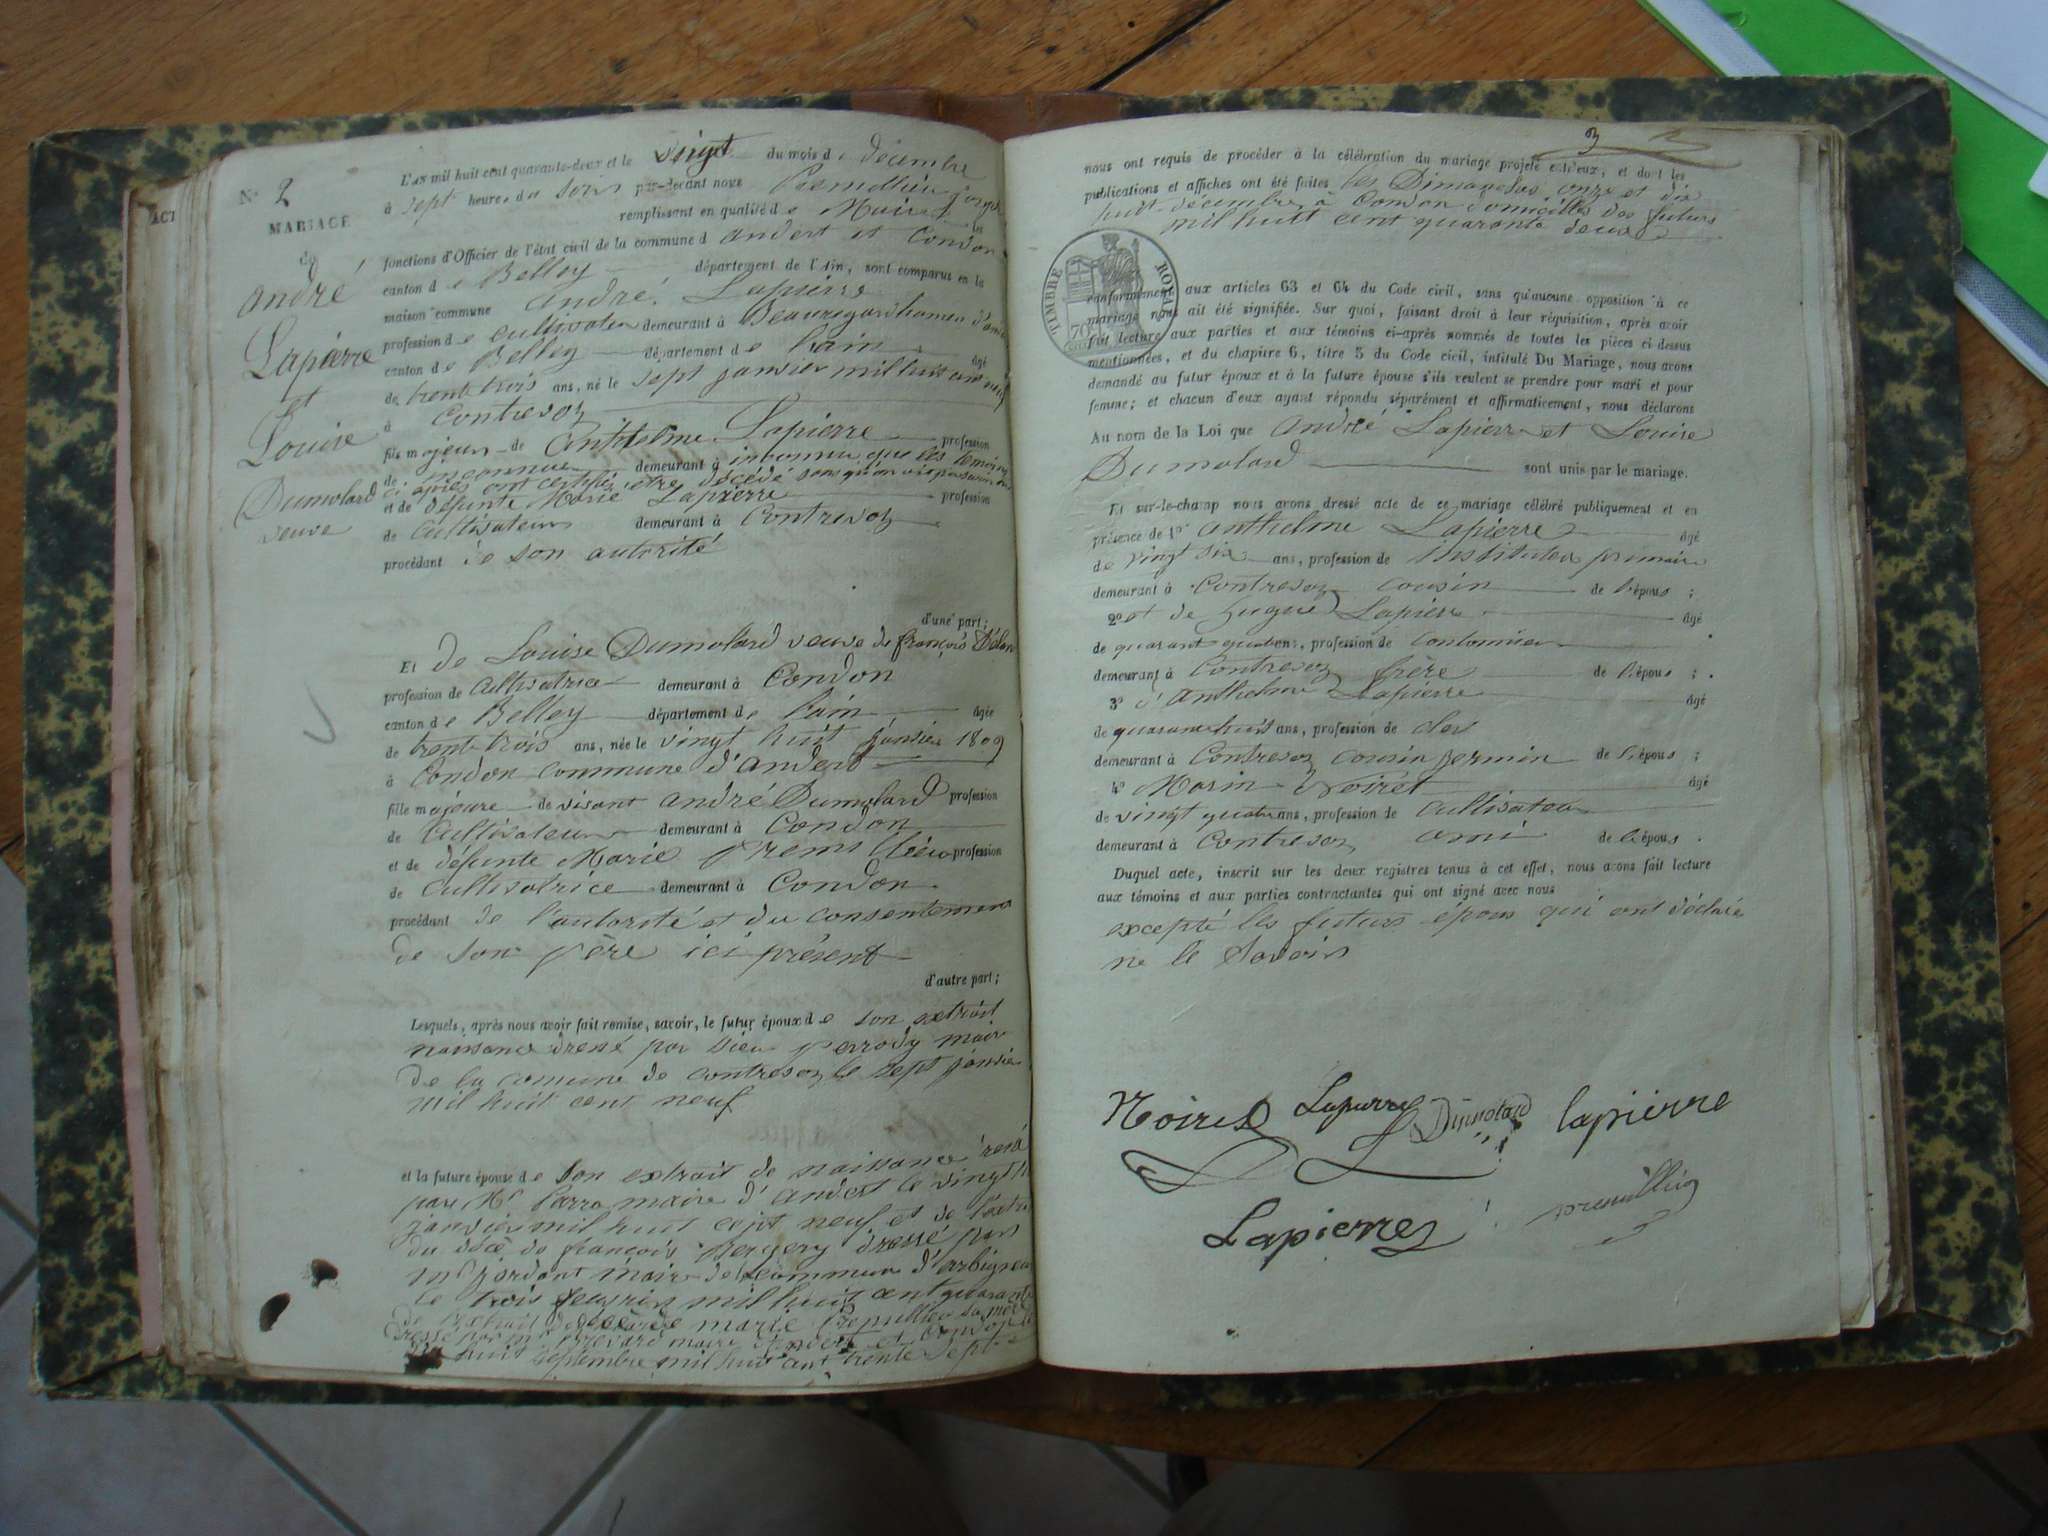 ACT
N° 2
MARIAGE
de
André
Lapierre
et
Louise
Dumolard
veuve
L'AN mil huit cent quarante-deux et le vingt du mois de décembre
à sept heures du soir par-devant nous
remplissant en qualité de Maire les
fonctions d'Officier de l'état civil de la commune d andert et Condon
canton de Belley département de l'Ain, sont comparus en la
maison commune André Lapierre
profession de cultivateur demeurant à Beauregard hameau d'
canton de Belley département de l'ain âgé
de trente trois ans, né le sept janvier mil huit cent neuf
à Contrevoz
fils majeur de Anthelme Lapierre profession
de inconnue demeurant à inconnu que les témoins
ci après ont certifié être décédé sans qu'on
et de défunte Marie Lapierre profession
de Cultivateur demeurant à Contrevoz
procédant de son autorité
d'une part;
Et de Louise Dumolard veuve de françois
profession de Cultivatrice demeurant à Condon
canton de Belley département de l'ain âgée
de trente trois ans, née le vingt huit janvier 1809
à Condon commune d'andert
fille majeure de vivant andré Dumolard profession
de Cultivateur demeurant à Condon
et de défunte Marie Premillieu profession
de Cultivatrice demeurant à Condon
procédant de l'autorité et du consentement
de son père ici présent
d'autre part;
Lesquels, après nous avoir fait remise, savoir, le futur époux de son extrait
naissance dressé par sieur perrody maire
de la comune de contrevoz le sept janvier
mil huit cent neuf
et la future épouse de son extrait de naissance
par Mr Parra maire d'andert le vingt
janvier mil huit cent neuf et de l'extrait
du décè de françois dressé par
mr jordant maire de la commune d'arbignieu
le trois mil huit cent quarante
de l'extrait de décè de marie Premillieu sa mère
dressé par mr maire d'andert et Condon le
huit septembre mil huit cent trente sept
3
nous ont requis de procéder à la célébration du mariage projeté entr'eux, et dont les
publications et affiches ont été faites les Dimanches onze et dix
huit décembre à Condon domicilles des futurs
mil huit cent quarante deux
TIMBRE ROYAL
70c
conformément aux articles 63 et 64 du Code civil, sans qu'aucune opposition à ce
mariage nous ait été signifiée. Sur quoi, faisant droit à leur réquisition, après avoir
fait lecture aux parties et aux témoins ci-après nommés de toutes les pièces ci dessus
mentionnées, et du chapitre 6, titre 5 du Code civil, intitulé Du Mariage, nous avons
demandé au futur époux et à la future épouse s'ils veulent se prendre pour mari et pour
femme; et chacun d'eux ayant répondu séparément et affirmativement, nous déclarons
Au nom de la Loi que André Lapierre et Louise
Dumolard sont unis par le mariage.
Et sur-le-champ nous avons dressé acte de ce mariage célébré publiquement et en
présence de 1° anthelme Lapierre âgé
de vingt six ans, profession de instituteur primaire
demeurant à Contrevoz cousin de l'épous ;
2° et de hugue Lapierre âgé
de quarant quatre ans, profession de Contonnier
demeurant à Contrevoz frère de l'épous ;
3° d'Anthelme Lapierre âgé
de quarant huit ans, profession de
demeurant à Contrevoz cousin germin de l'épous ;
4° Marin Noiret âgé
de vingt quatre ans, profession de Cultivateur
demeurant à Contrevoz ami de l'épous .
Duquel acte, inscrit sur les deux registres tenus à cet effet, nous avons fait lecture
aux témoins et aux parties contractantes qui ont signé avec nous
excepté les futurs épous qui ont déclaré
ne le savoir
Noiret Lapierre Dumolard lapierre
Lapierre premillieu